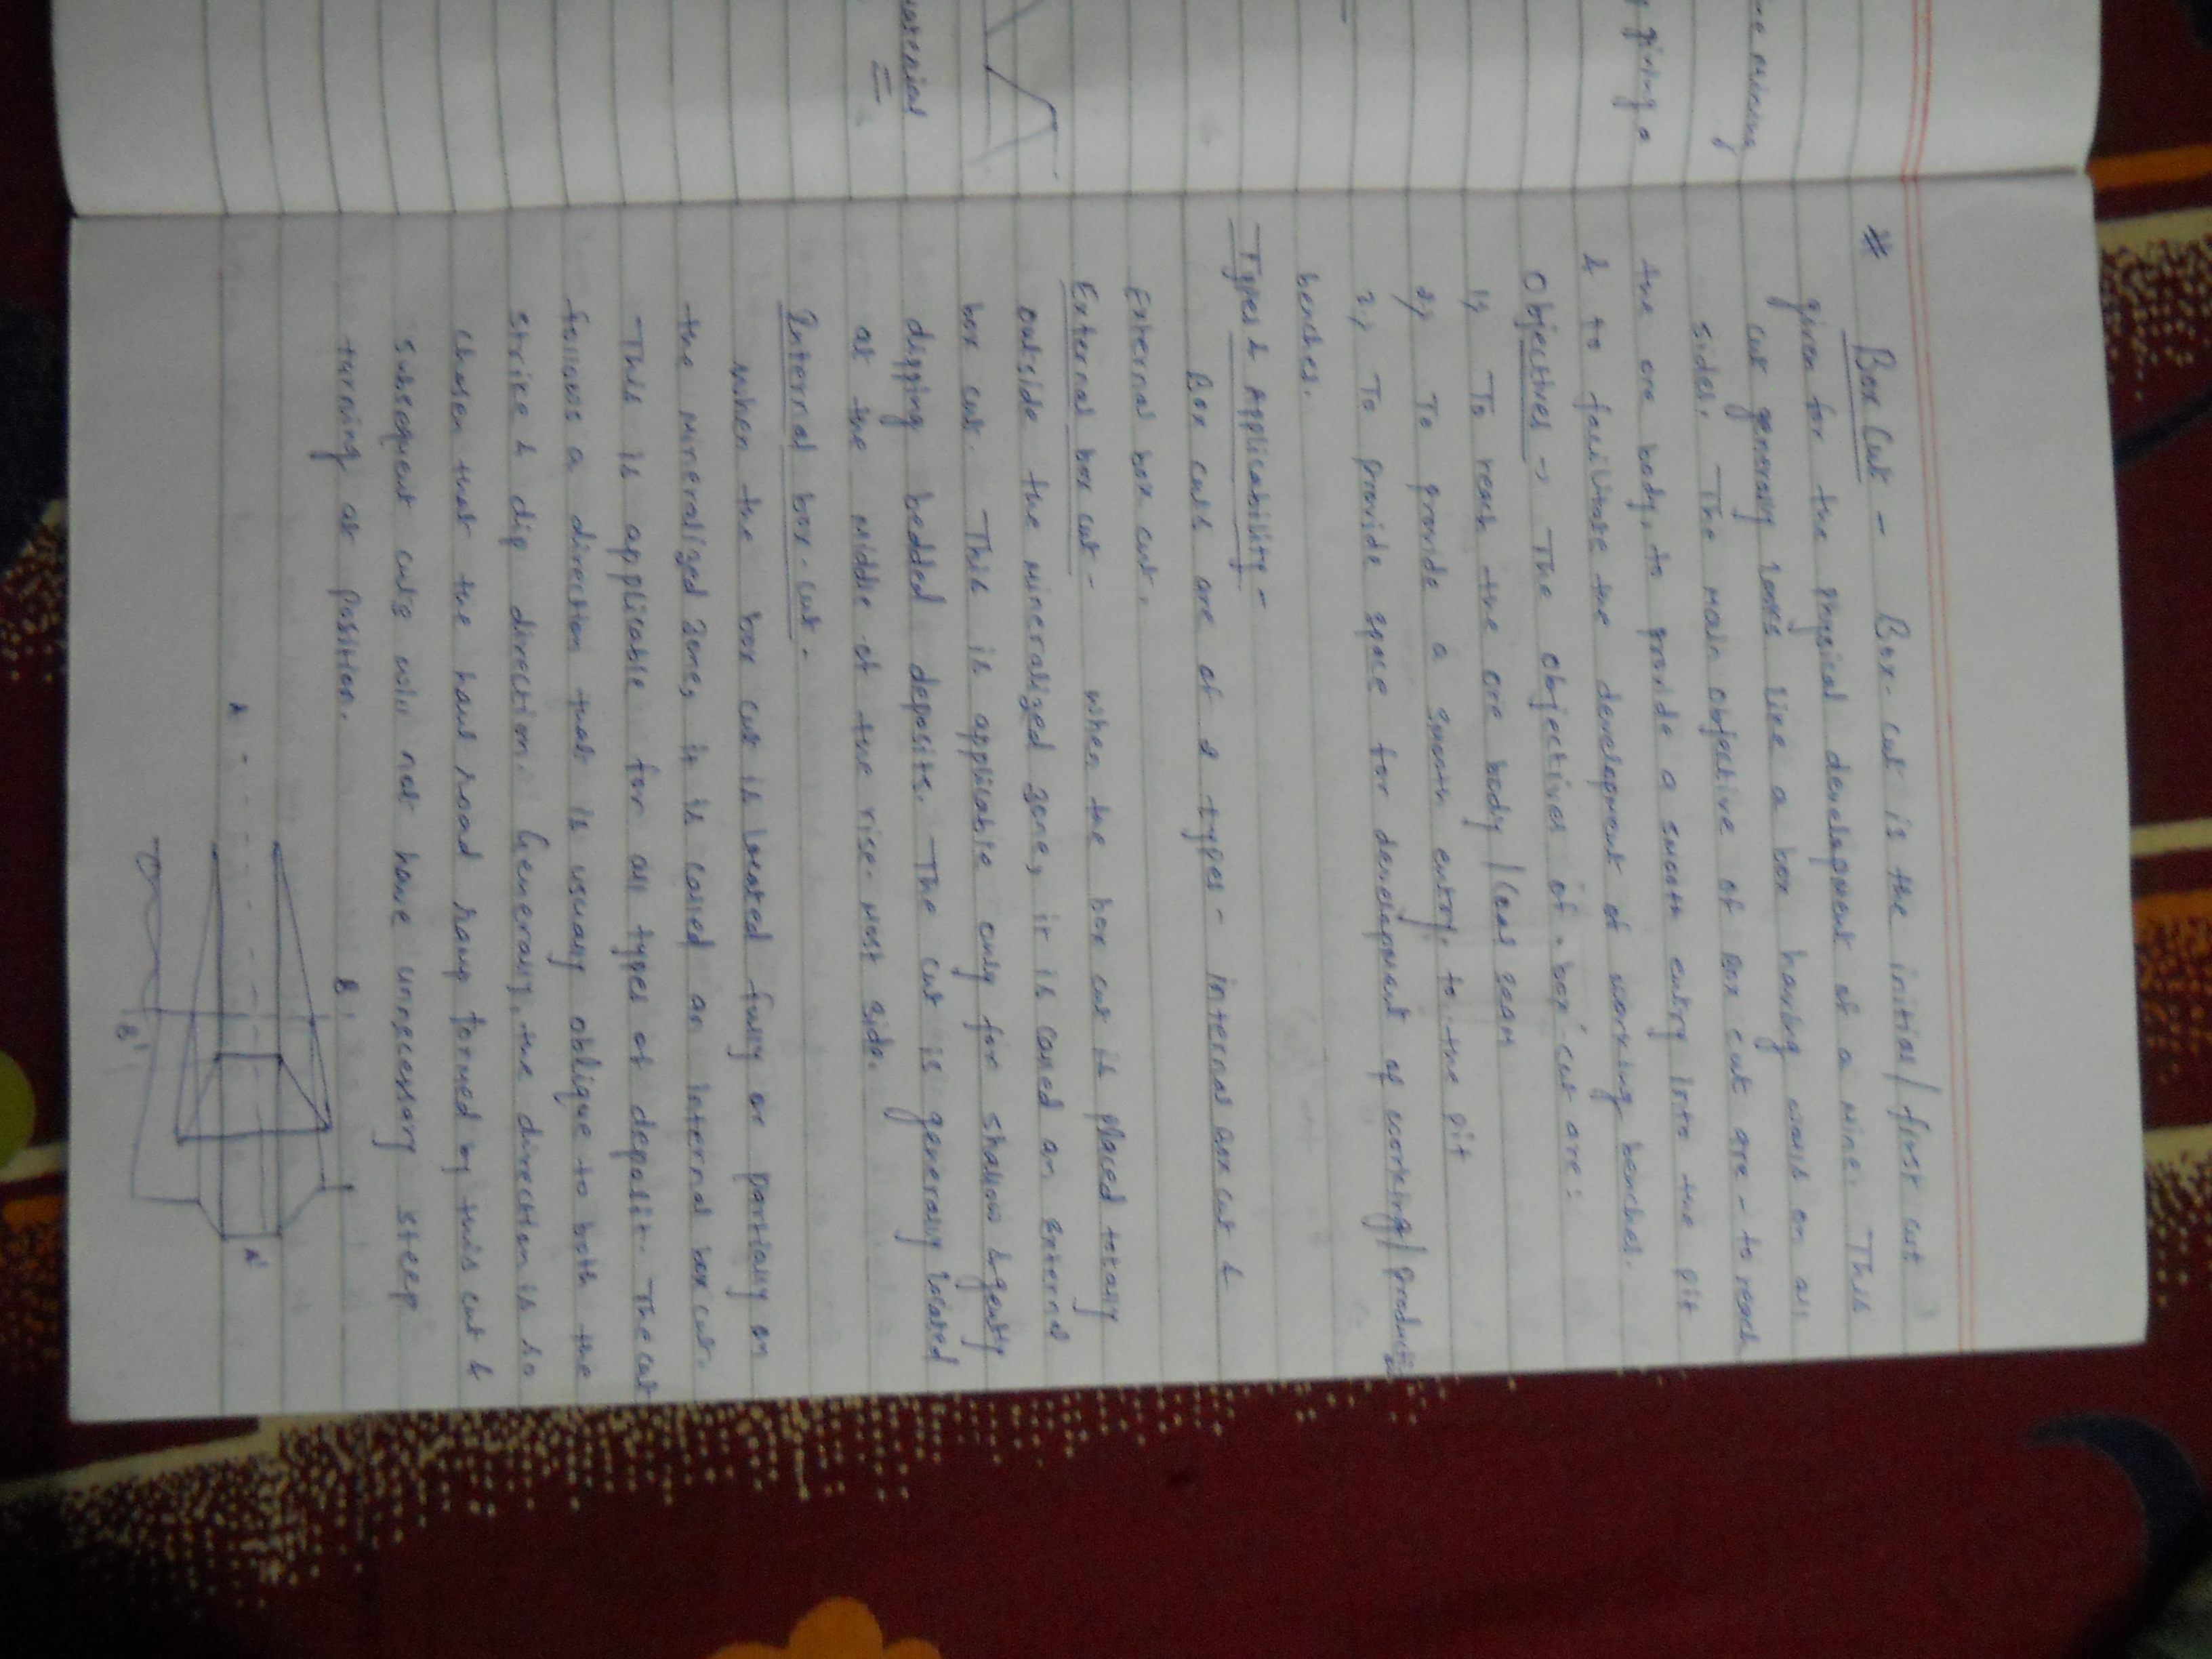 he mining
giving a
material
# Box Cut - Box-cut is the initial/first cut
given for the physical development of a mine. This
cut generally looks like a box having walls on all
sides. The main objective of box cut are - to reach
the ore body, to provide a smooth entry into the pit
& to facilitate the development of working benches.
Objectives -> The objectives of box cut are:
1) To reach the ore body / coal seam
2) To provide a smooth entry to the pit
3) To provide space for development of working/production
benches.
Types & Applicability -
Box cuts are of 2 types - internal box cut &
External box cut.
External box cut - When the box cut is placed totally
outside the mineralized zone, it is called an external
box cut. This is applicable only for shallow & gently
dipping bedded deposits. The cut is generally located
at the middle of the rise-most side.
Internal box-cut.
when the box cut is located fully or partially on
the mineralized zone, it is called an internal box cut.
This is applicable for all types of deposit. The cut
follows a direction that is usually oblique to both the
strice & dip direction. Generally, the direction is so
chosen that the haul road ramp formed by this cut &
subsequent cuts will not have unnecessary steep
turning at position.
B
A
A'
B'